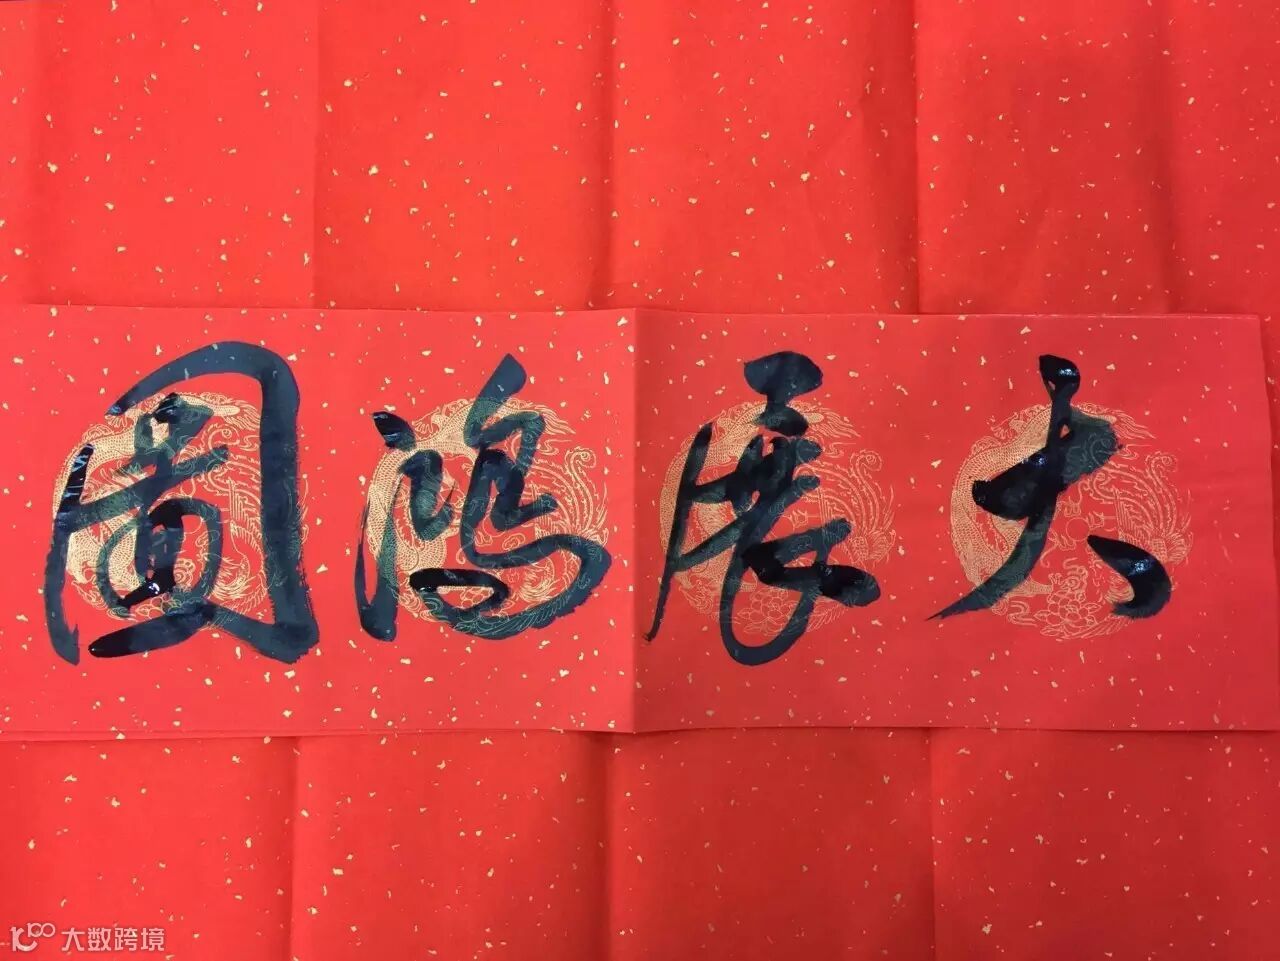 大展鴻圖
大数跨境